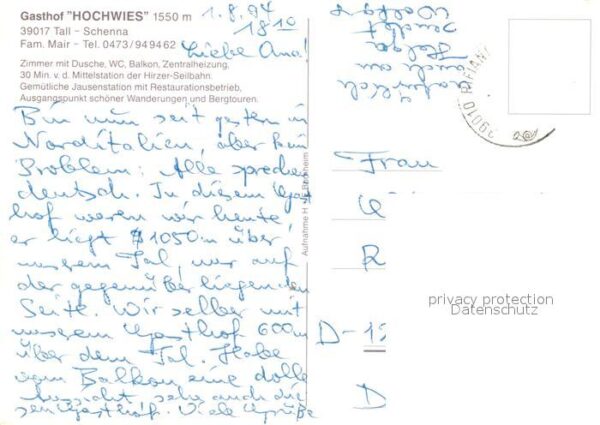 Gasthof "HOCHWIES" 1550 m
39017 Tall - Schenna
Fam. Mair - Tel. 0473/949462
Zimmer mit Dusche, WC, Balkon, Zentralheizung.
30 Min. v. d. Mittelstation der Hirzer-Seilbahn.
Gemütliche Jausenstation mit Restaurationsbetrieb,
Ausgangspunkt schöner Wanderungen und Bergtouren.
1.8.94
18 10
Liebe Oma!
Bin nun seit gestern in
Norditalien, aber kein
Problem: Alle sprechen
deutsch. In diesem Gast
hof waren wir heute,
er liegt 1050m über
unserem Tal, nur auf
der gegenüberliegenden
Seite. Wir selber mit
unserem Gasthof 600m
über dem Tal. Habe
vom Balkon eine dolle
Aussicht, sehe auch die
sen Gasthof. Viele Grüße
natürlich
auch an
Helga
sendet
Wolfgang
Aufnahme H
39010
Frau
D-
D
privacy protection
Datenschutz